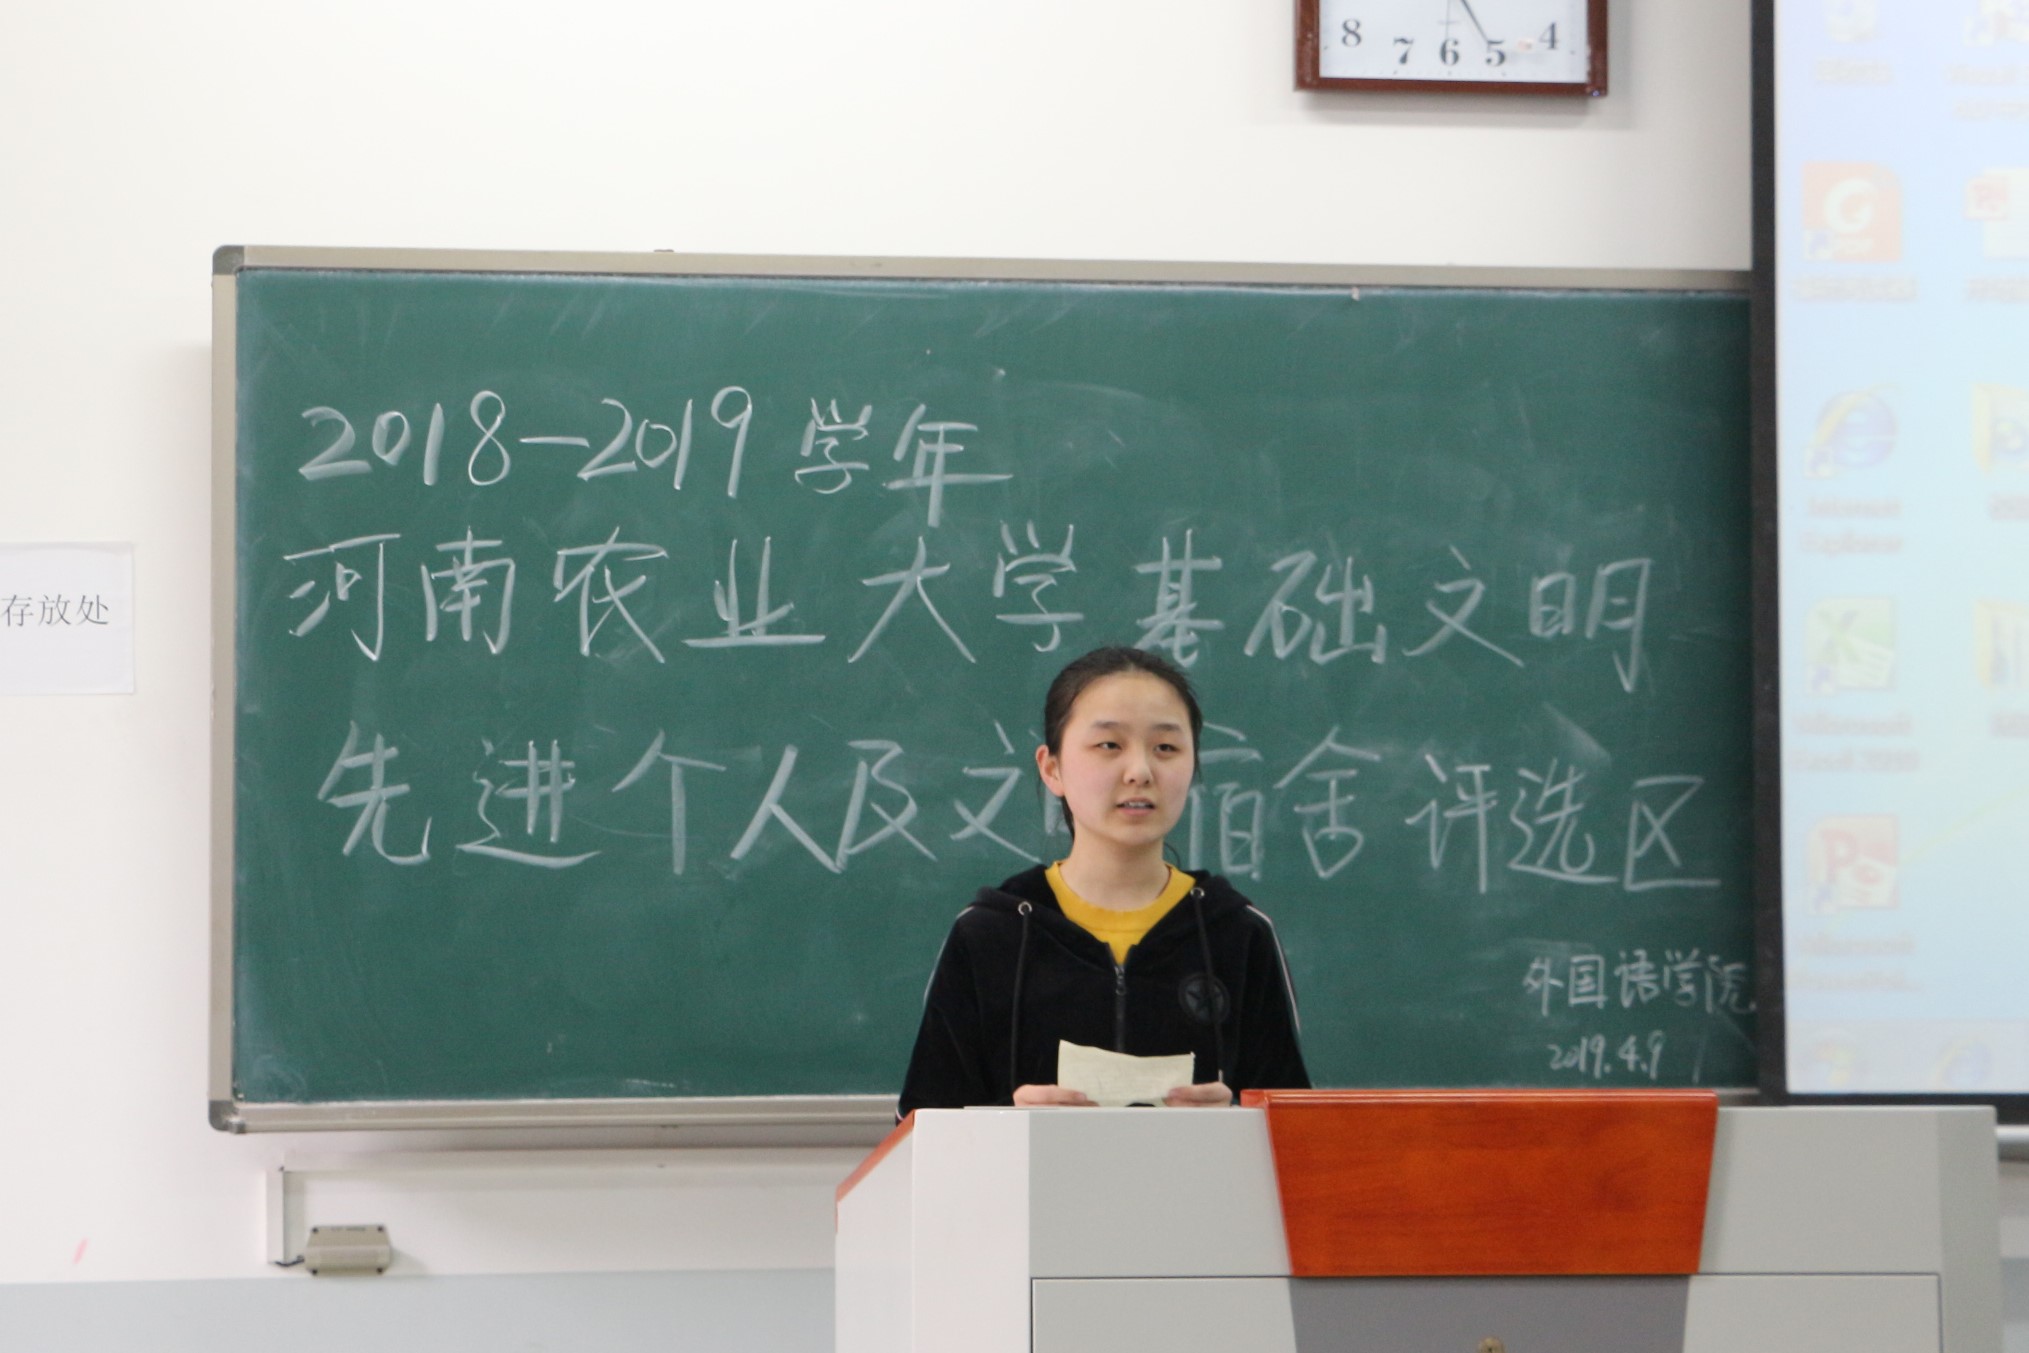 8 7 6 5 4
2018-2019学年
河南农业大学基础文明
存放处
先进个人及文 宿舍评选区
外国语学院
2019.4.9